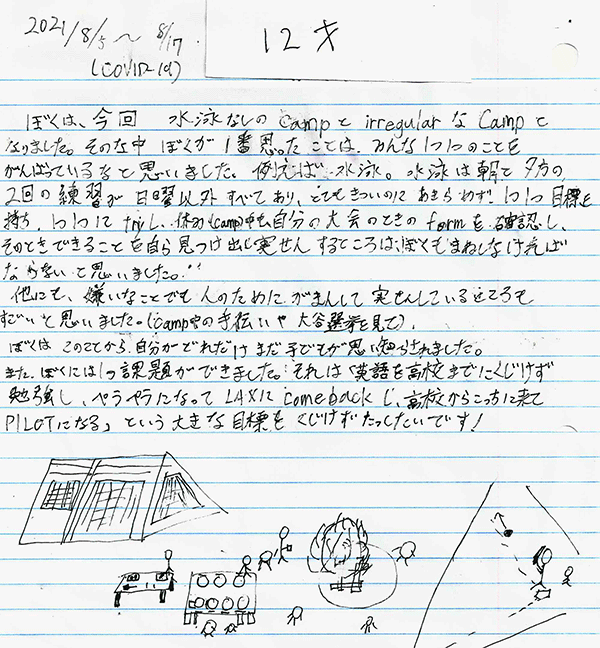 2021/8/5～8/17
(COVID-19)
12才
ぼくは、今回 水泳なしのcampとirregularなCampと
なりました。そのな中 ぼくが1番思ったことは、みんな1つ1つのことを
がんばっているなと思いました。例えば 水泳。水泳は朝と夕方の、
2回の練習が日曜以外すべてあり、とてもきついのにあきらめず、1つ1つ目標を
持ち、1つ1つにtryし、休み(camp)中も自分の大会のときのformを確認し、
そのときできることを自ら見つけ出し実せんするところは、ぼくもまねしなければ
ならないと思いました。
他にも、嫌いなことでも人のためにがまんして実せんしているところも
すごいと思いました。(camp中の手伝いや大谷選手を見て)。
ぼくはこのことから、自分がどれだけまだ子どもか思い知らされました。
また、ぼくには1つ課題ができました。それは「英語を高校までにくじけず
勉強し、ペラペラになってLAXにcomebackし、高校からこっちに来て
PILOTになる」という大きな目標をくじけずたっしたいです!